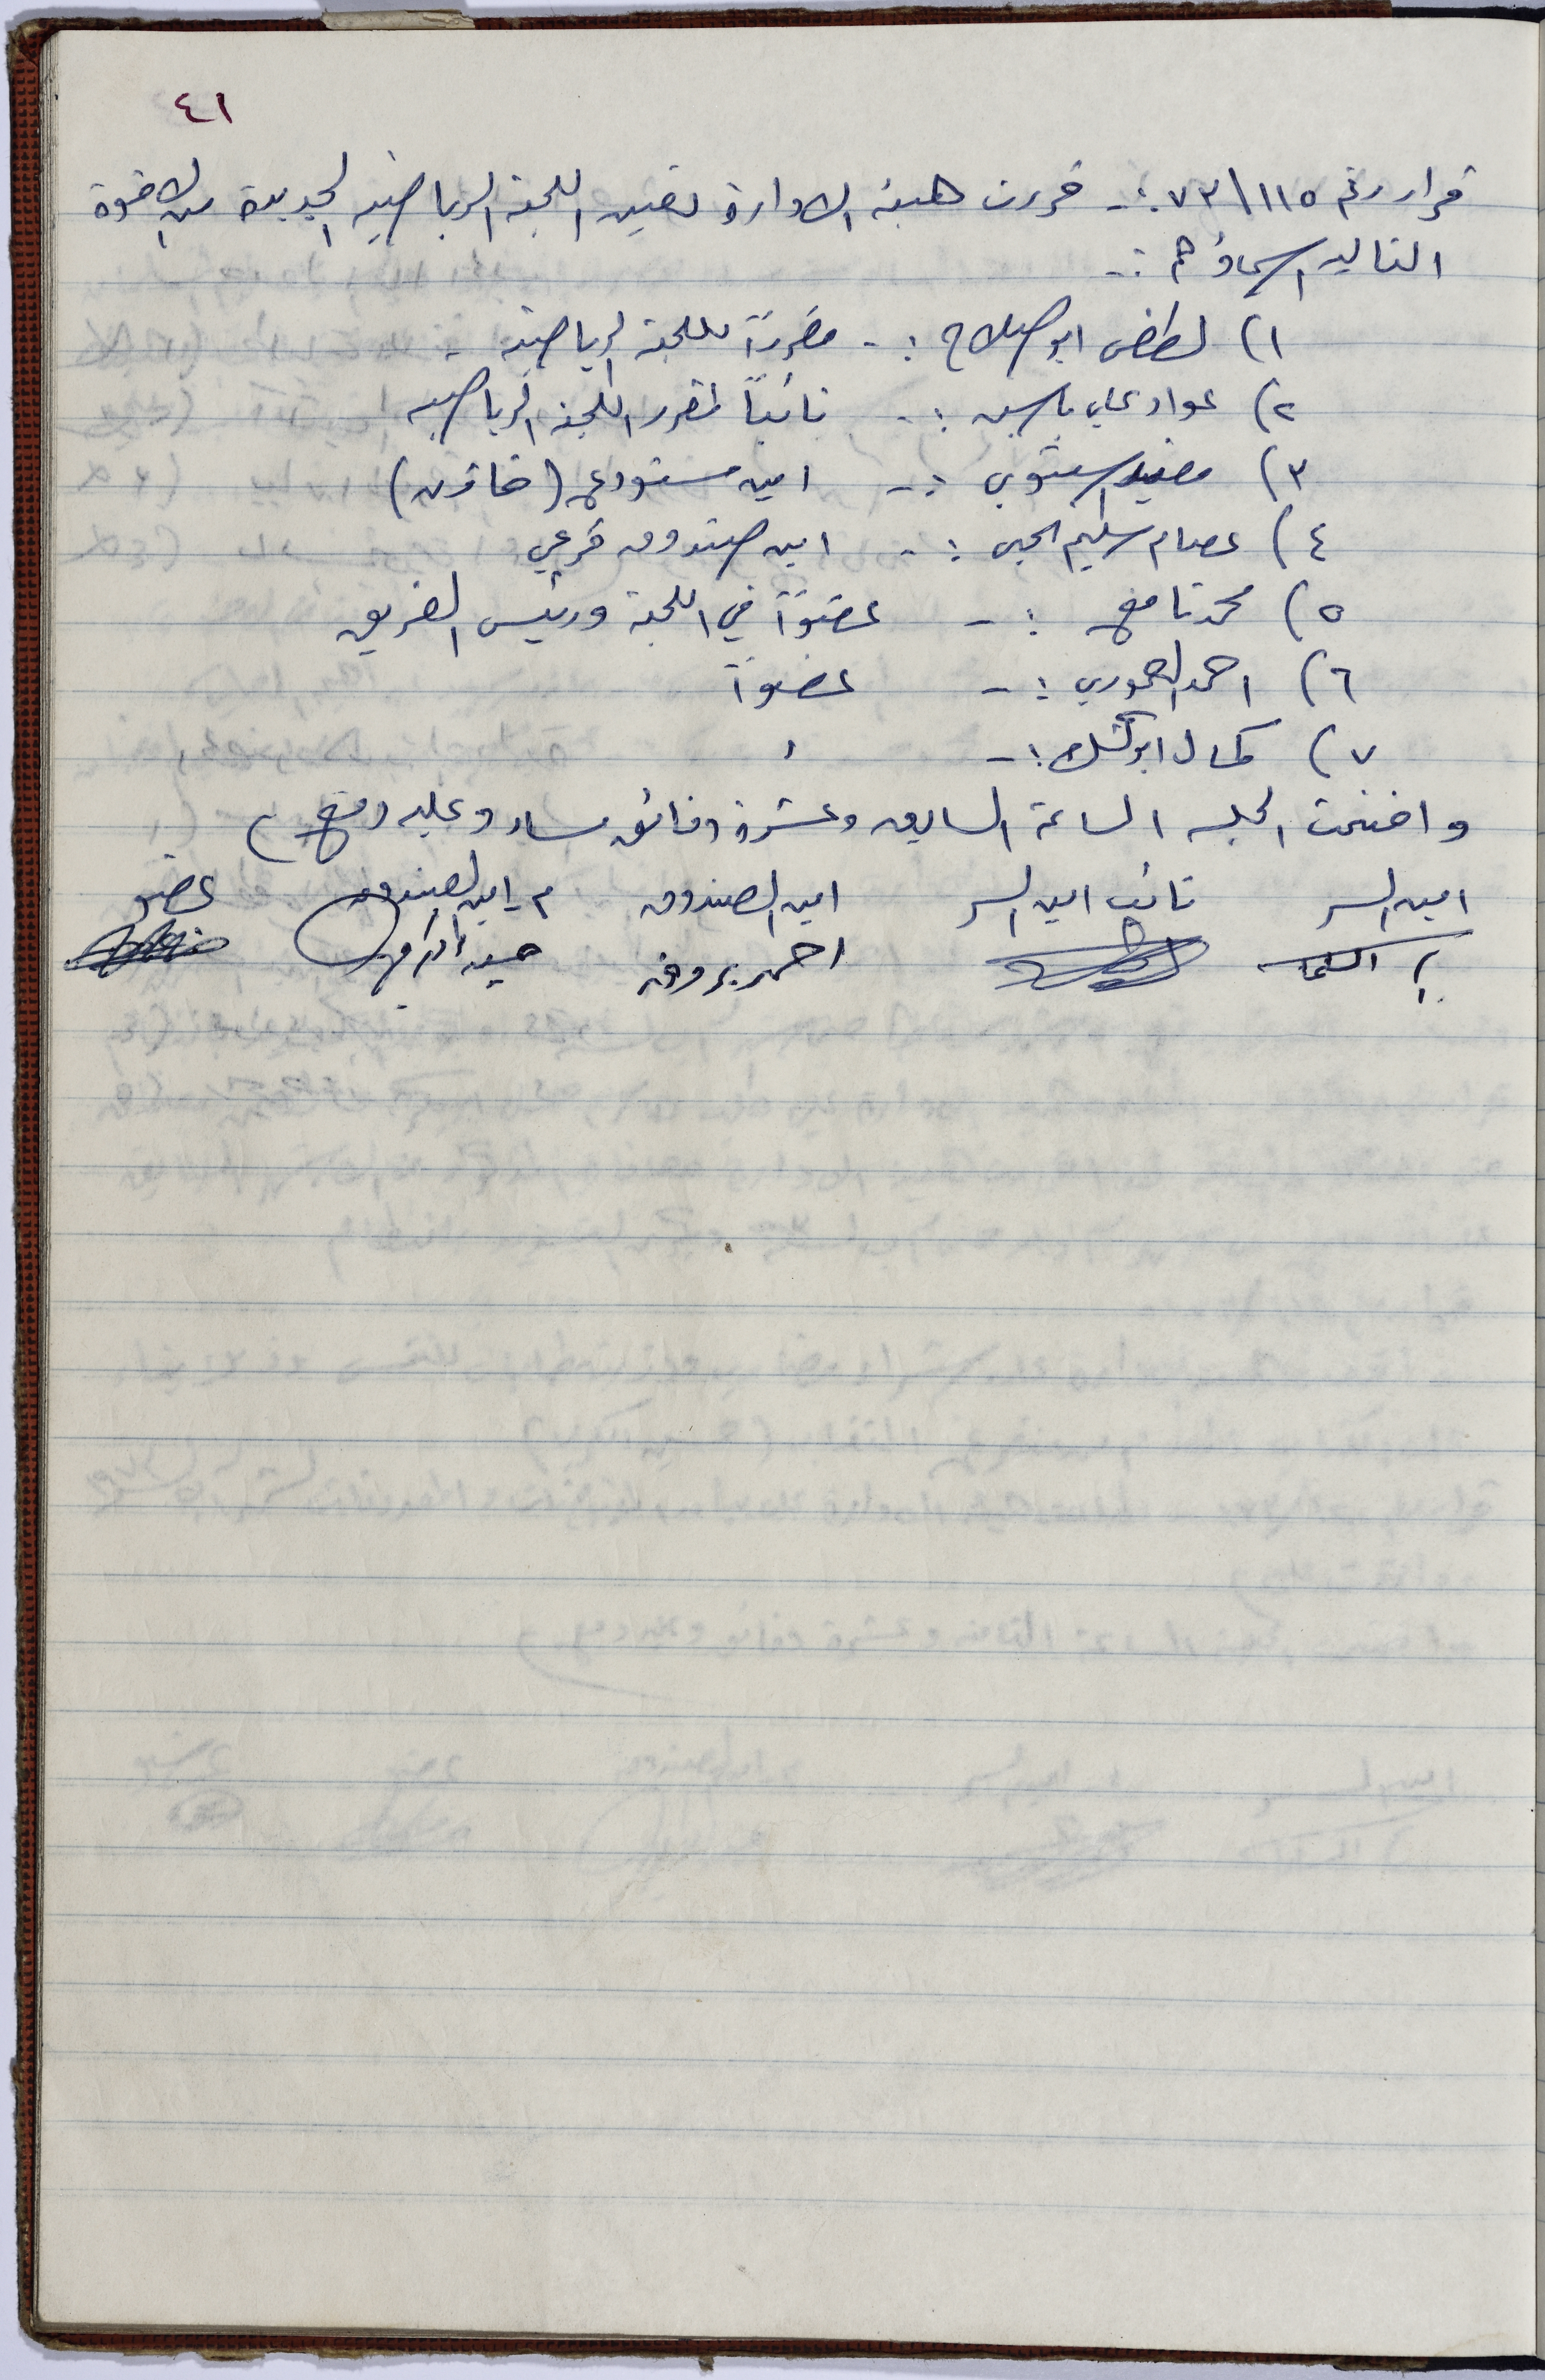 ٤١
قرار رقم ١١٥\٧٣ :- قررت هيئة الادارة تعيين اللجنة الرياضيه الجديدة من الاخوة
التاليه اسماؤهم :-
١) لطفي ابو صلاح :- مقررآ للجنة الرياضية .
٢) عواد علي ياسين :- نائباً لمقرر اللجنة الرياضيه
٣) مفيد استوبي :- امين مستودع (خازن)
٤) عصام سليم :- امين صندوق فرعي
٥) محمد نافع :- عضوآ في اللجنة ورئيس الفريق
٦) احمد العموري :- عضوآ
٧) كمال ابو كشك :- "
واختتمت الجلسه الساعة السابعه وعشرة دقائق مساء وعليه نوقع )
امين السر نائب امين السر امين الصندوق م. امين الصندوق عضو
احمد